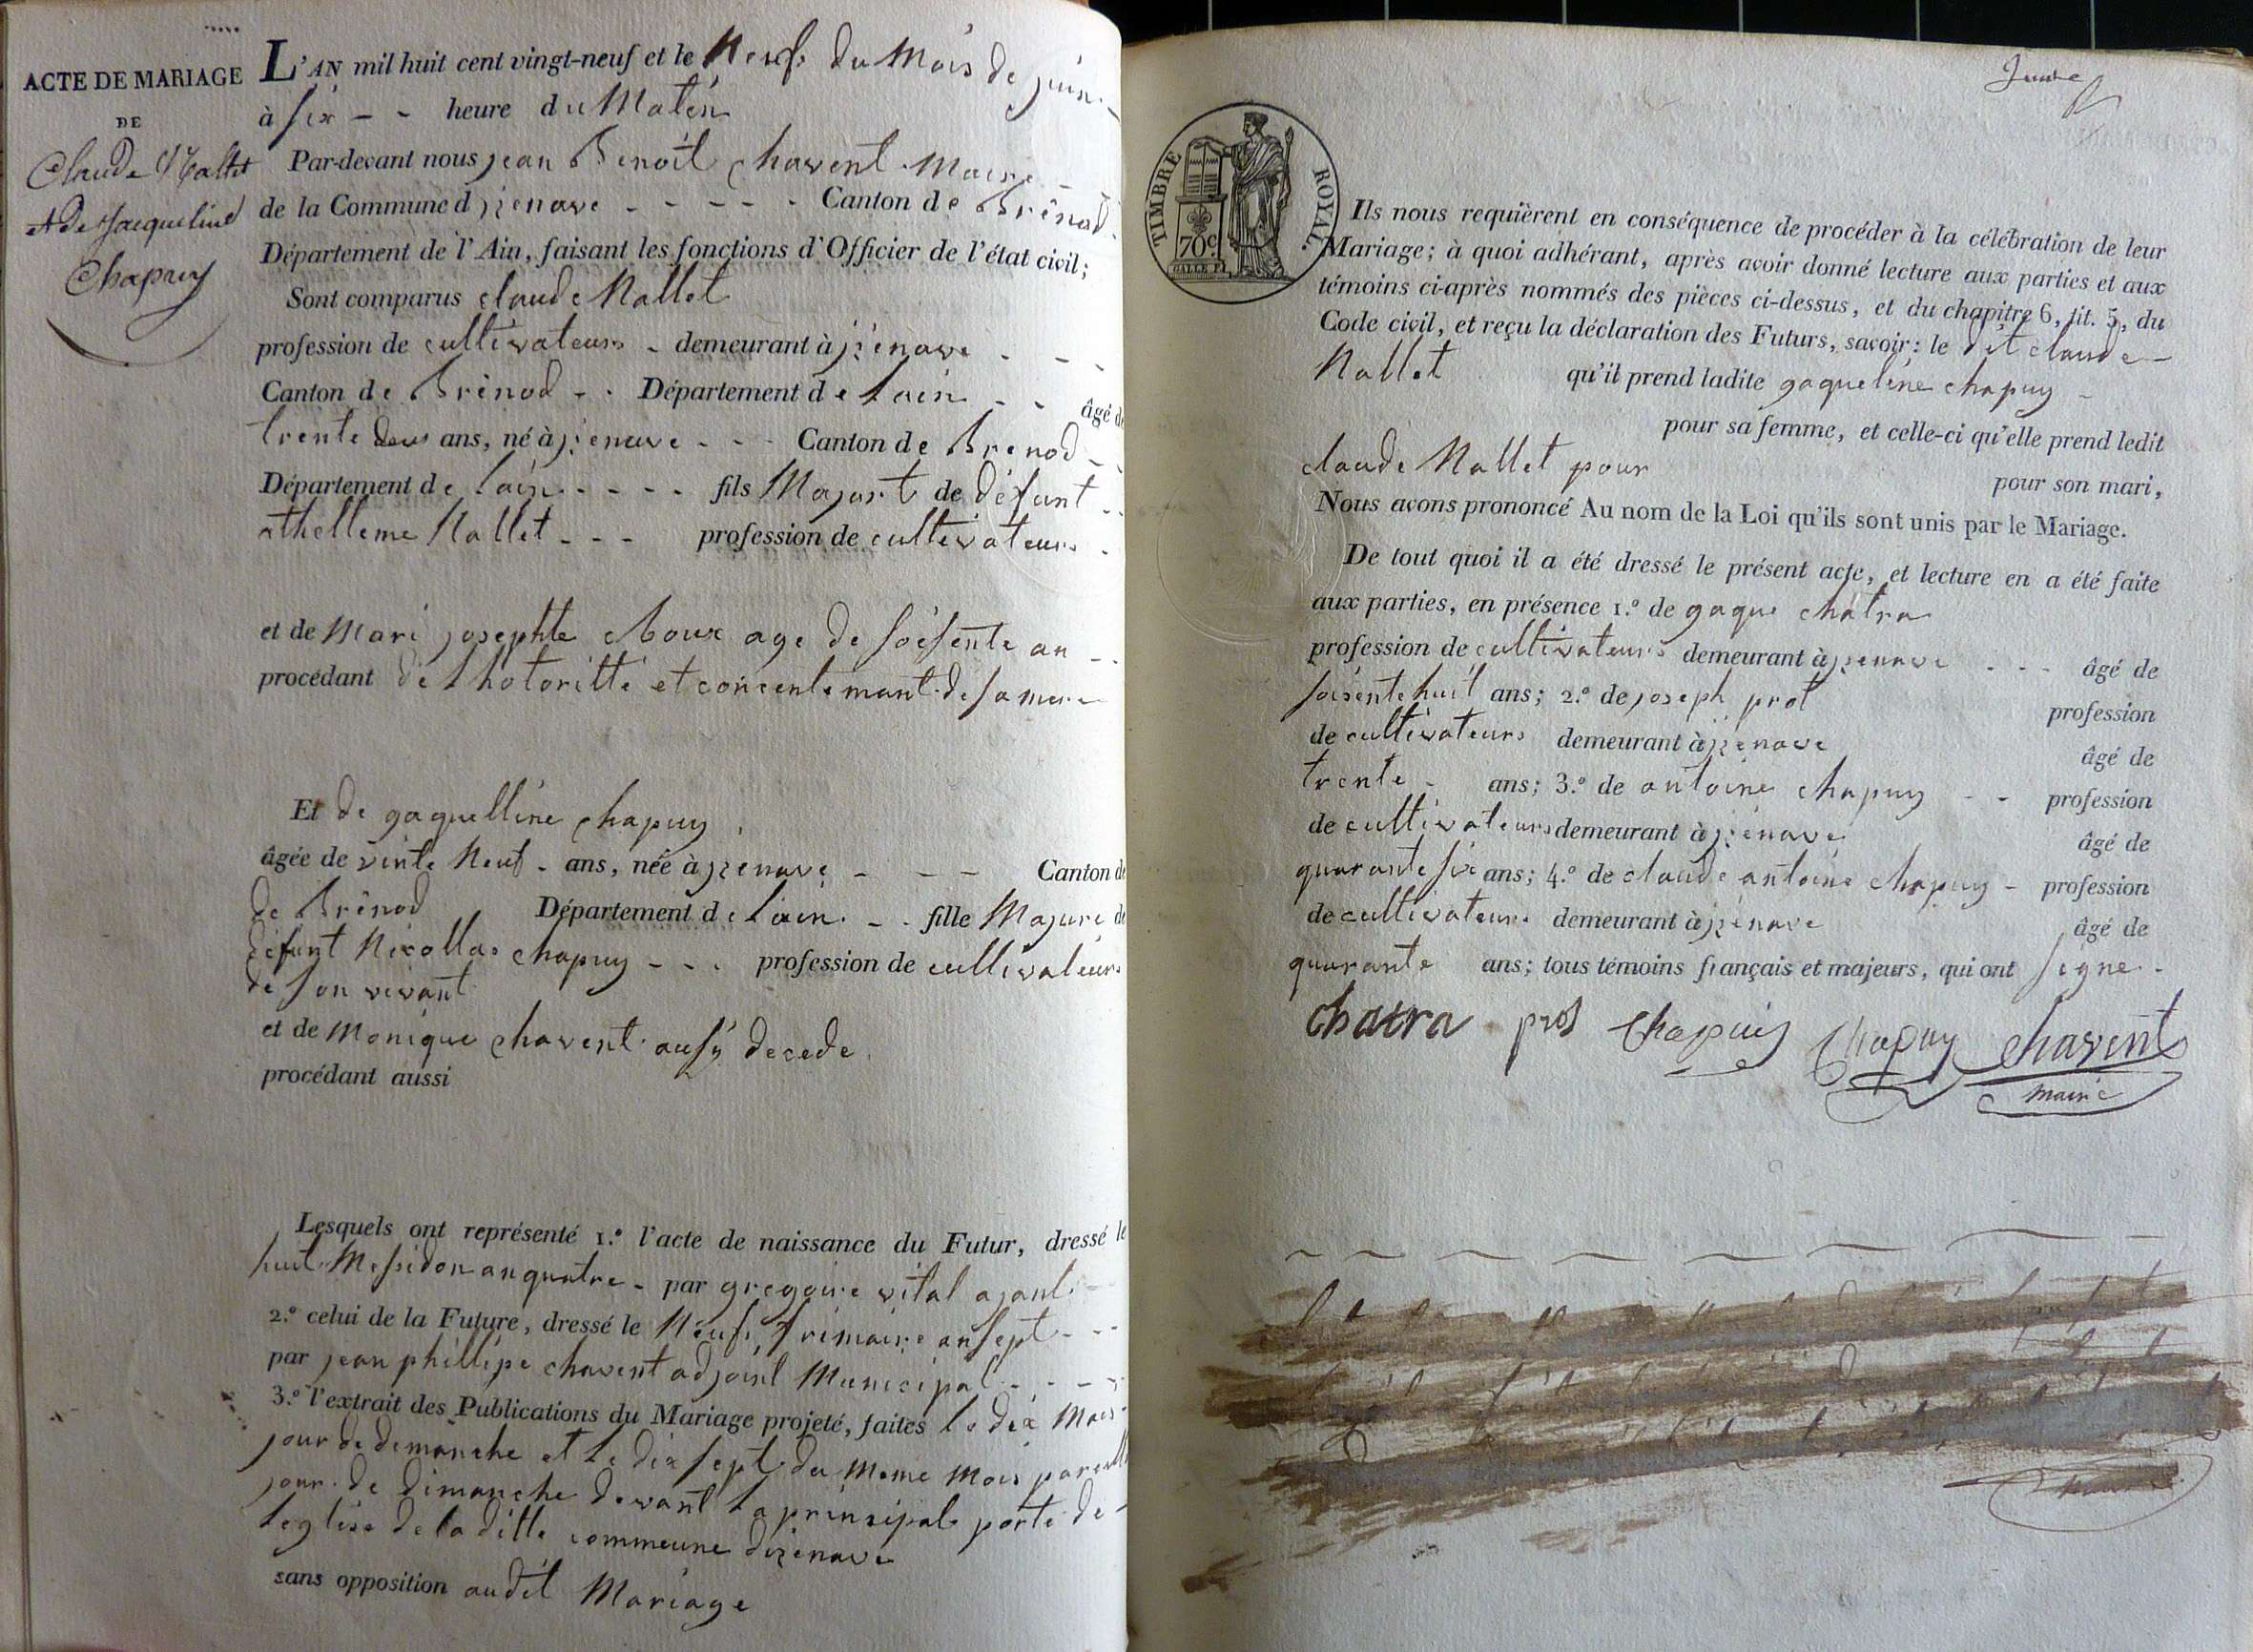 ACTE DE MARIAGE
DE
Claude Nallet
et de Jacqueline
Chapuy
L'AN mil huit cent vingt-neuf et le Neufs du Mois de juin
à six - - heure du Maten
Par-devant nous jean Benoit chavent Maire
de la Commune d jzenave - - - - - Canton de Brénod
Département de l'Ain, faisant les fonctions d'Officier de l'état civil;
Sont comparus claude Nallet
profession de cultivateurs - demeurant à jzénave - - -
Canton de Brénod - - Département de Lain - - âgé de
trente deus ans, né à jzenave - - - Canton de Brenod - -
Département de Lain - - - - fils Majort de défunt - -
athelleme Nallet - - - profession de cultivateurs -
et de Mari josephte Roux age de soisente an - -
procédant de Lhotoritté et concentemant de sa mere
Et de gaquelline chapuy
âgée de vinte Neuf - ans, née à jzenave - - - Canton de
de Brénod Département de Lain - - fille Majure de
défunt Nicollas chapuy - - - profession de cultivateurs
de son vivant
et de Monique chavent ausy decede
procédant aussi
Lesquels ont représenté 1.° l'acte de naissance du Futur, dressé le
huit Messidor an quatre - par gregoire vital ajant
2.° celui de la Future, dressé le Neufs frimaire an sept - - -
par jean phillipe chavent adjoint Municipal - - - -
3.° l'extrait des Publications du Mariage projeté, faites le dix Mais
jour de demanche et le dix sept du meme mois pareill
jour de dimanche devant la prinsipale porte de
leglise de la ditte commeune dizenave
sans opposition audit Mariage
TIMBRE ROYAL.
70 c.
Ils nous requièrent en conséquence de procéder à la célébration de leur
Mariage; à quoi adhérant, après avoir donné lecture aux parties et aux
témoins ci-après nommés des pièces ci-dessus, et du chapitre 6, tit. 5, du
Code civil, et reçu la déclaration des Futurs, savoir: le dit claude -
Nallet qu'il prend ladite gaqueline chapuy -
pour sa femme, et celle-ci qu'elle prend ledit
claude Nallet pour
pour son mari,
Nous avons prononcé Au nom de la Loi qu'ils sont unis par le Mariage.
De tout quoi il a été dressé le présent acte, et lecture en a été faite
aux parties, en présence 1.° de gaque chatra
profession de cultivateurs demeurant à jzenave - - - âgé de
soisente huit ans; 2.° de joseph prot profession
de cultivateurs demeurant à jzenave âgé de
trente - ans; 3.° de antoine chapuy - - profession
de cultivateurs demeurant à jzenave âgé de
quarante six ans; 4.° de claude antoine chapuy - profession
de cultivateurs demeurant à jzénave âgé de
quarante ans; tous témoins français et majeurs, qui ont signe -
Chatra prot Chapuis Chapuy Chavent
maire